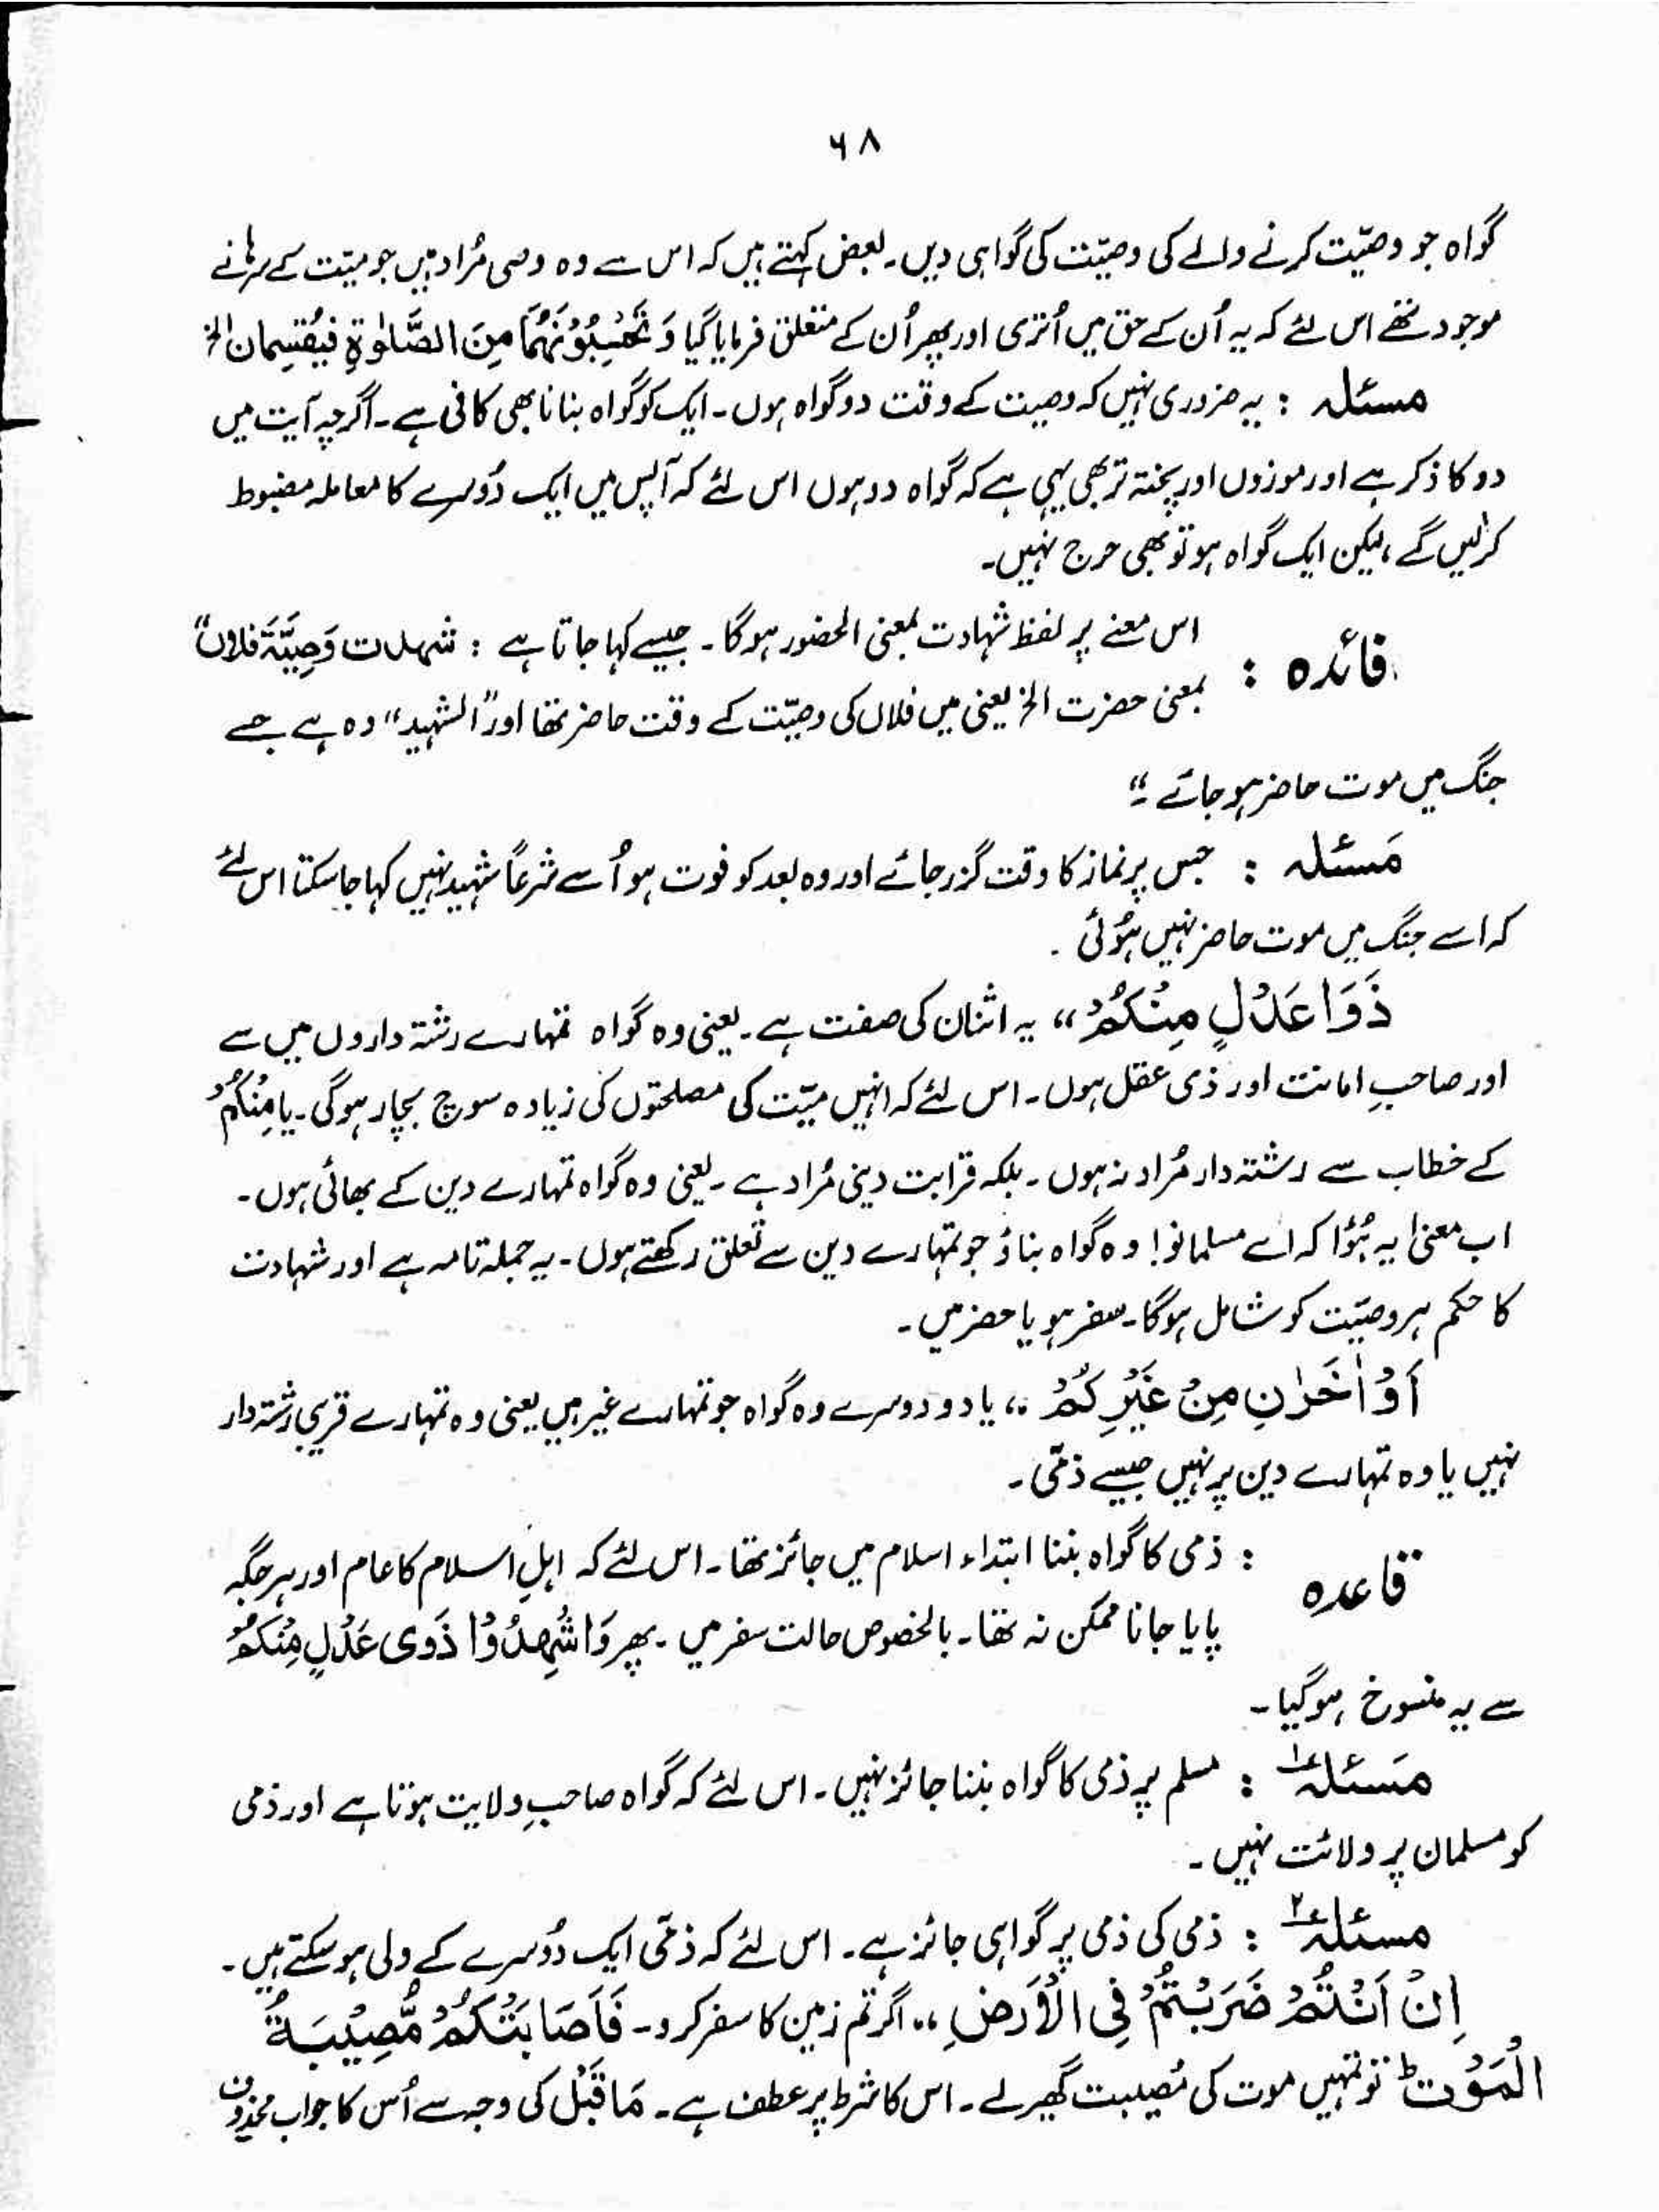 ۶۸
گواہ جو وصیّت کرنے والے کی وصیّت کی گواہی دیں۔ بعض کہتے ہیں کہ اس سے وہ وصی مُراد ہیں جو میّت کے سرہانے
موجود تھے اس لئے کہ یہ اُن کے حق میں اُتری اور پھر اُن کے متعلق فرمایا گیا وَ تَحْبِسُوْنَهُمَا مِنَ الصَّلٰوةِ فَيُقْسِمَانِ الخ
مسئلہ : یہ ضروری نہیں کہ وصیت کے وقت دو گواہ ہوں۔ ایک کو گواہ بنانا بھی کافی ہے۔ اگرچہ آیت میں
دو کا ذکر ہے اور موزوں اور پختہ تر بھی یہی ہے کہ گواہ دو ہوں اس لئے کہ آپس میں ایک دُوسرے کا معاملہ مضبوط
کرلیں گے، لیکن ایک گواہ ہو تو بھی حرج نہیں۔
فائدہ : اس معنے پر لفظ شہادت بمعنی الحضور ہوگا۔ جیسے کہا جاتا ہے : شہدت وَصِیَّۃَ فلانٍ"
بمعنی حضرت الخ یعنی میں فلاں کی وصیّت کے وقت حاضر تھا اور "الشہید" وہ ہے جسے
جنگ میں موت حاضر ہو جائے۔"
مَسئلہ : جس پر نماز کا وقت گزر جائے اور وہ بعد کو فوت ہو اُسے شرعاً شہید نہیں کہا جا سکتا اس لئے
کہ اسے جنگ میں موت حاضر نہیں ہوُئی .
ذَوَا عَدْلٍ مِنْكُمْ " یہ اثنان کی صفت ہے۔ یعنی وہ گواہ تمہارے رشتہ داروں میں سے
اور صاحبِ امانت اور ذی عقل ہوں۔ اس لئے کہ انہیں میّت کی مصلحتوں کی زیادہ سوچ بچار ہوگی۔ یا مِنْکُمْ
کے خطاب سے رشتہ دار مُراد نہ ہوں۔ بلکہ قرابت دینی مُراد ہے۔ یعنی وہ گواہ تمہارے دین کے بھائی ہوں۔
اب معنیٰ یہ ہُؤا کہ اے مسلمانو! وہ گواہ بناؤ جو تمہارے دین سے تعلق رکھتے ہوں۔ یہ جملہ تامہ ہے اور شہادت
کا حکم ہر وصیّت کو شامل ہوگا۔ سفر ہو یا حضر میں۔
اَوْ اٰخَرٰنِ مِنْ غَیْرِکُمْ " یا دو دوسرے وہ گواہ جو تمہارے غیر ہیں یعنی وہ تمہارے قریبی رشتہ دار
نہیں یا وہ تمہارے دین پر نہیں جیسے ذمّی۔
قاعدہ : ذمی کا گواہ بننا ابتداء اسلام میں جائز تھا۔ اس لئے کہ اہلِ اسلام کا عام اور ہر جگہ
پایا جانا ممکن نہ تھا۔ بالخصوص حالت سفر میں۔ پھر وَاشْهِدُوْا ذَوی عَدْلٍ مِنْکُمْ
سے یہ منسوخ ہوگیا۔
مَسئلہ ۱ : مسلم پر ذمی کا گواہ بننا جائز نہیں۔ اس لئے کہ گواہ صاحبِ ولایت ہوتا ہے اور ذمی
کو مسلمان پر ولائت نہیں۔
مسئلہ ۲ : ذمی کی ذمی پر گواہی جائز ہے۔ اس لئے کہ ذمّی ایک دُوسرے کے ولی ہو سکتے ہیں۔
اِنْ اَنْتُمْ ضَرَبْتُمْ فِی الْاَرْضِ " اگر تم زمین کا سفر کرو۔ فَاَصَابَتْکُمْ مُّصِیْبَۃُ
الْمَوْتِ ط تو تمہیں موت کی مُصیبت گھیر لے۔ اس کا شرط پر عطف ہے۔ مَا قَبْل کی وجہ سے اُس کا جواب محذوف